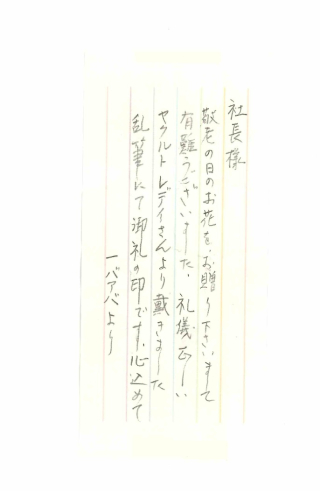 社長様
敬老の日のお花を、お贈り下さいまして
有難うございました、礼儀正しい
ヤクルトレデイさんより戴きました
乱筆にて御礼の印です、心込めて
一バアバより